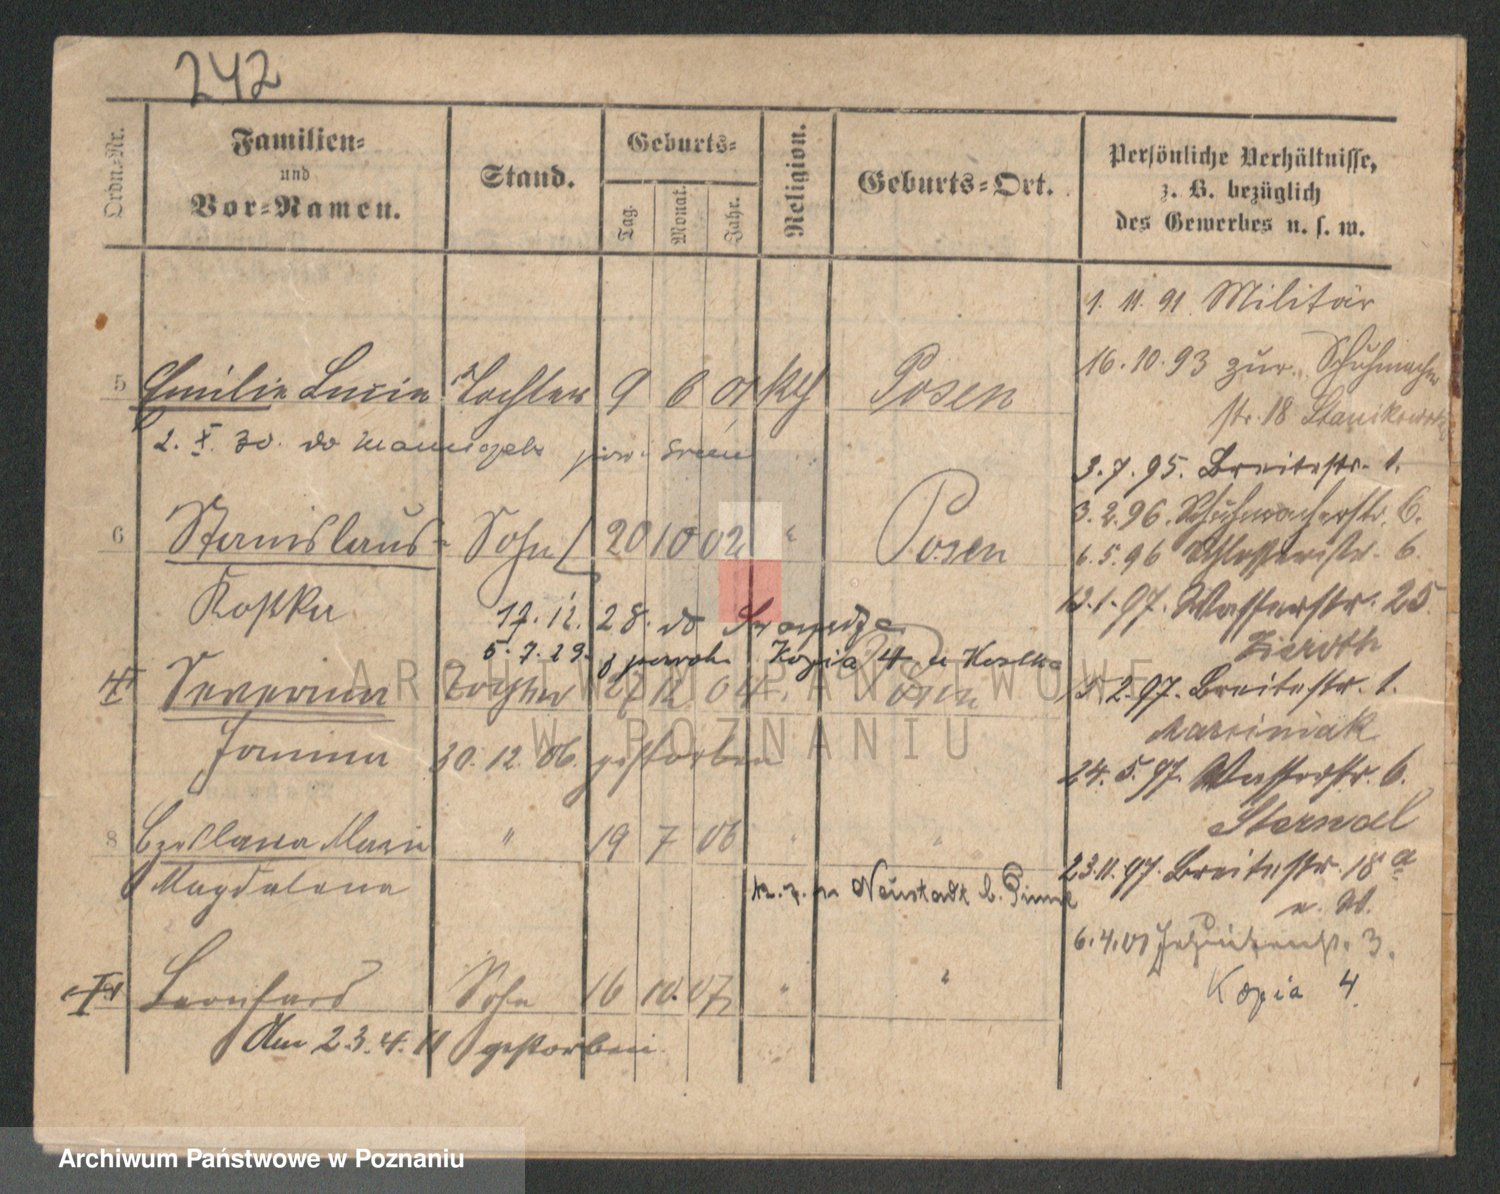 242
Ordn.-Nr.
Familien-
und
Vor-Namen.
Stand.
Geburts-
Tag.
Monat.
Jahr.
Religion.
Geburts-Ort.
Persönliche Verhältnisse,
z. B. bezüglich
des Gewerbes u. s. w.
1. 11. 91 Militär
16. 10. 93 zur. Schuhmacher
str. 18
5 Emilie Lucie Tochter 9 6 01 kth Posen
2. X. 30. do
3. 7. 95. Breitestr. 1.
3. 2. 96. Schuhmacherstr. 6.
6 Stanislaus- Sohn 20 10 02 " Posen
6. 5. 96 Schlosserstr. 6.
Kostka
12. 1. 97. Wasserstr. 25.
17. 12. 28. do
5. 7. 29. Kopia 4 u Kostka
Severina Tochter 27 12 04 Posen
5. 2. 97. Breitestr. 1.
Marciniak
Janina 30. 12. 06. gestorben
24. 5. 97. Wasserstr. 6.
Sternal
8 Czeslawa Marie " 19 7 06 " "
Magdalena
23. 11. 97. Breitestr. 18 a
Neustadt b. Pinne
n. W.
6. 4. 01 3.
Kopia 4.
Leonhard Sohn 16 10. 07 " "
Am 23. 4. 11 gestorben.
ARCHIWUM PAŃSTWOWE
W POZNANIU
Archiwum Państwowe w Poznaniu